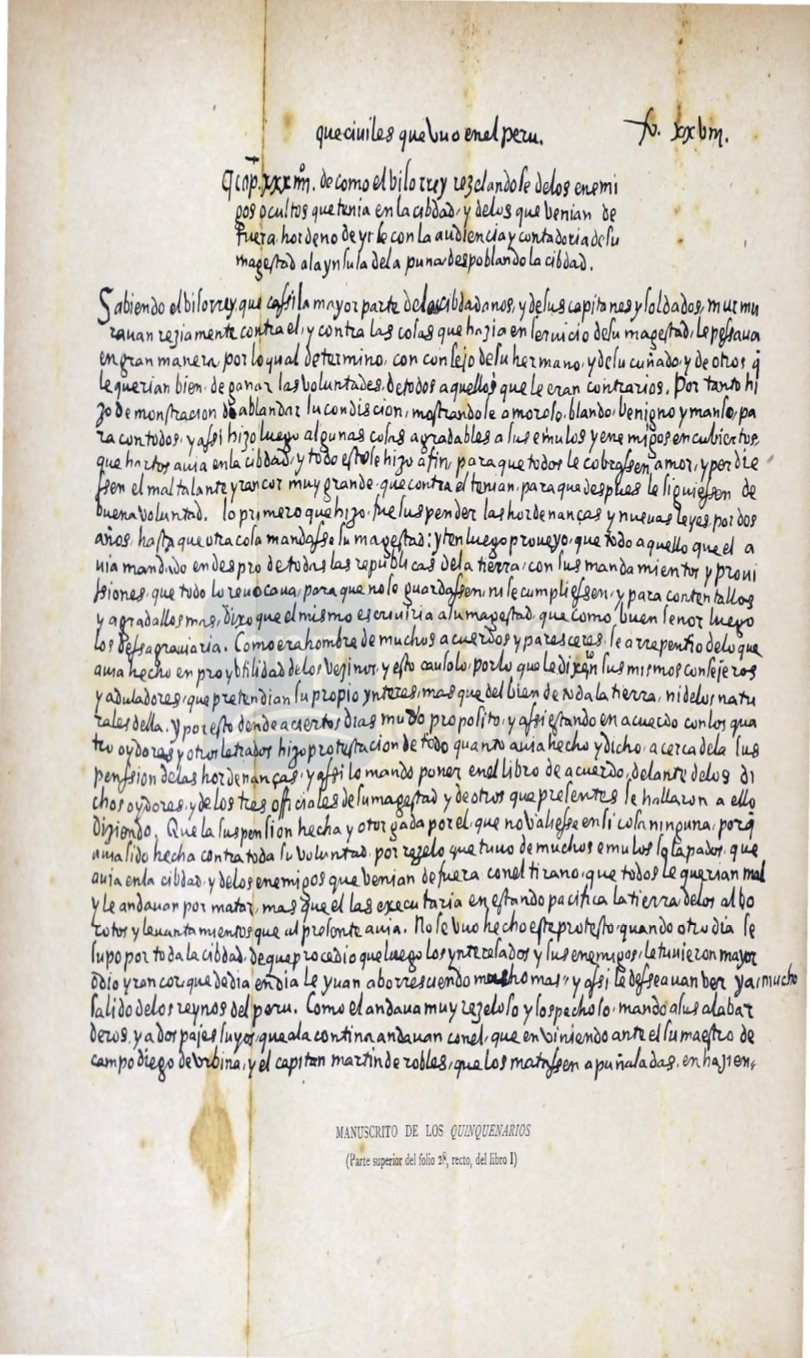 que ciuiles que vuo en el peru. fo. xxviii.
¶ Cap. xxxiiiº. de como el bisorrey rezelandose delos enemi
gos ocultos que tenia en la cibdad, y delos que venian de
fuera, hordeno de yrse con la audiencia y contadoria de su
magestad ala ynsula dela puna despoblando la cibdad.
Sabiendo el bisorrey que cassi la mayor parte delos cibdadanos, y de sus capitanes y soldados, murmu
rauan reziamente contra el, y contra las cosas que hazia en seruicio de su magestad, le pessaua
en gran manera por lo qual determino, con consejo de su hermano, y de su cuñado, y de otros q̃
le querian bien, de ganar las voluntades, de todos aquellos que le eran contrarios. Por tanto hi
zo demonstracion de ablandar su condiscion, mostrandose amoroso, blando, benigno y manso, pa
ra con todos, y assi hizo luego algunas cosas agradables a sus emulos y enemigos encubiertos,
que hartos auia en la cibdad, y todo esto se hizo a fin, para que todos le cobrassen amor, y perdie
ssen el mal talante y rancor muy grande que contra el tenian, para que despues le siguiessen de
buena voluntad. lo primero que hizo, fue suspender las hordenanças y nueuas leyes, por dos
años, hasta que otra cosa mandasse su magestad: y ten luego proueyo, que todo aquello que el a
uia mandado en despro de todas las republicas dela tierra, con sus mandamientos y proui
ssiones, que todo lo reuocaua, para que no se guardassen, ni se cumpliessen, y para contentallos
y agradallos mas, dixo que el mismo escriuiria a su magestad, que como buen señor luego
los dessagrauiaria. Como era hombre de muchos acuerdos y paresceres, se arrepentio delo que
auia hecho en pro y vtilidad delos vezinos, y esto causolo, por lo que le dixerõ sus mismos consejeros
y aduladores, que pretendian su propio ynteres, mas que del bien de toda la tierra, ni delos natu
rales della. Y por esto dende a ciertos dias mudo proposito, y assi estando en acuerdo con los qua
tro oydores y otros letrados hizo protestacion de todo quanto auia hecho y dicho, acerca dela sus
penssion delas hordenanças, y assi lo mando poner en el libro de acuerdo, delante delos di
chos oydores, y de los tres officiales de su magestad y de otros que presentes se hallaron a ello
diziendo. Que la suspension hecha y otorgada por el, que no valiesse en si cosa ninguna, porq̃
auia sido hecha contra toda su voluntad, por rezelo que tuuo de muchos emulos solapados, que
auia en la cibdad, y delos enemigos que venian de fuera con el tirano, que todos le querian mal
y le andauan por matar, mas que el las executaria en estando pacifica la tierra delos albo
rotos y leuantamientos que al presente auia. No se vuo hecho este protesto, quando otro dia se
supo por toda la cibdad, de que procedio que luego los ynteresados y sus enemigos, le tuuieron mayor
odio y rancor, que de dia en dia le yuan aborresciendo mucho mas, y assi le desseauan ver ya mucho
salido delos reynos del peru. Como el andaua muy rezeloso y sospechoso, mando a sus alabar
deros, y a dos pajes suyos, que ala contina andauan con el, que en viniendo ante el su maestro de
campo diego de vrbina, y el capitan martin de robles, que los matassen a puñaladas, en hazien,
MANUSCRITO DE LOS QUINQUENARIOS
(Parte superior del folio 28, recto, del libro I)